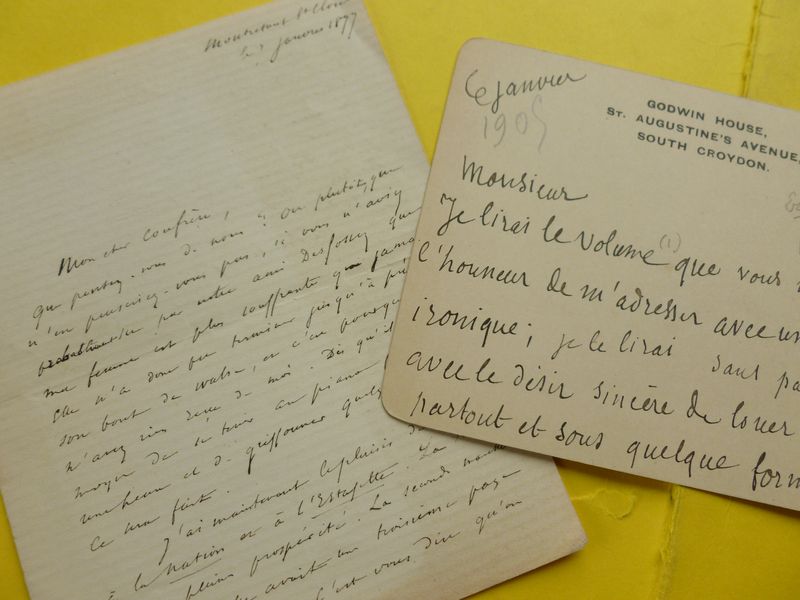 Montretout St Clou
janvier 1877
Mon cher Confrère,
que pensez-vous de nous ? Ou plutôt, que
n'en penseriez-vous pas, si vous n'aviez
par notre ami Desfossez que
ma femme est plus souffrante que jamai
elle n'a donc pu terminer jusqu'à pré
son bout de valse, et c'est pourquoi
n'avez rien reçu de moi. Dès qu'il
moyen de se tenir au piano
une heure et de griffonner quelq
ce sera fait.
J'ai maintenant le plaisir d
à la Nation et à l'Estafette. La
pleine prospérité. La seconde
avait un troisième pag
C'est vous dire qu'on
6 janvier
1905
GODWIN HOUSE,
ST. AUGUSTINE'S AVENUE,
SOUTH CROYDON.
Monsieur
Je lirai le Volume (1) que vous
l'honneur de m'adresser avec un
ironique; je le lirai sans pa
avec le désir sincère de louer
partout et sous quelque form